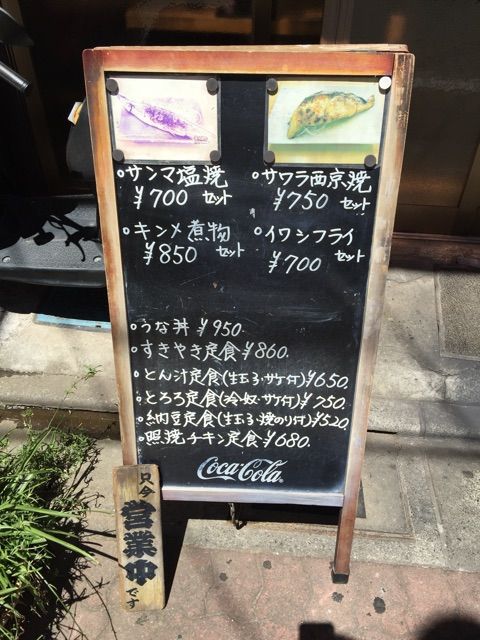 ○サンマ塩焼
¥700 セット
○サワラ西京焼
¥750 セット
○キンメ煮物
¥850 セット
○イワシフライ
¥700 セット
○うな丼 ¥950.
○すきやき定食 ¥860.
○とん汁定食(生玉子・サケ付) ¥650.
○とろろ定食(冷奴・サケ付) ¥750.
○納豆定食(生玉子・焼のり付) ¥520.
○照焼チキン定食 ¥680.
Coca-Cola®
只今
営業中
です